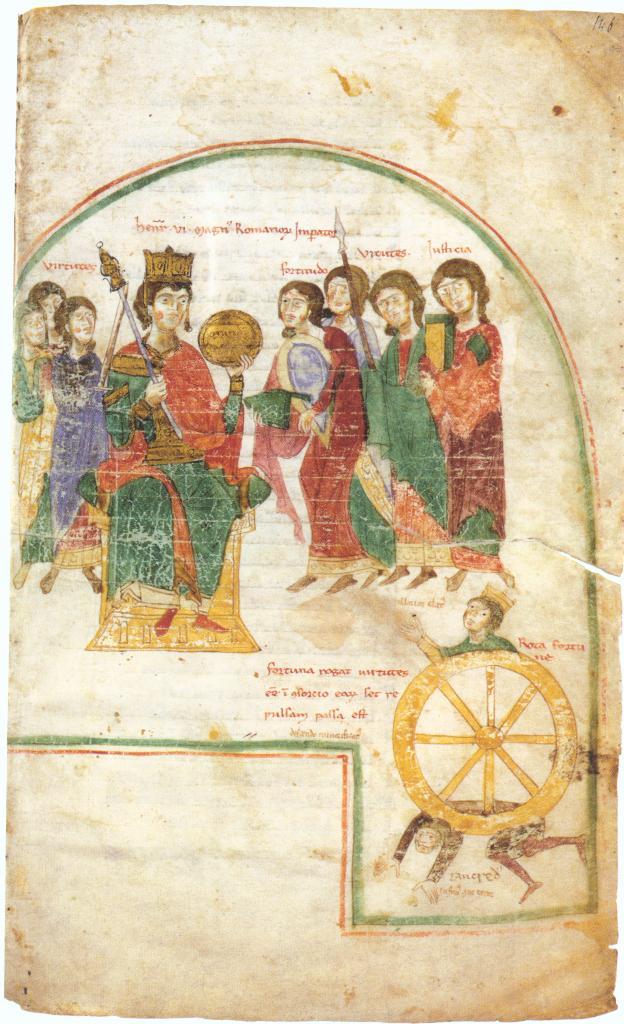 146
henr̄ · vi · magn⁹ Romanoꝝ Impator
virtutes
fortitudo
Virtutes ·
Justicia
Rota fortu
ne
fortuna rogat uirtutes
eē ī ꝯsorcio eaꝝ set re
pulsam passa est
tancred⁹